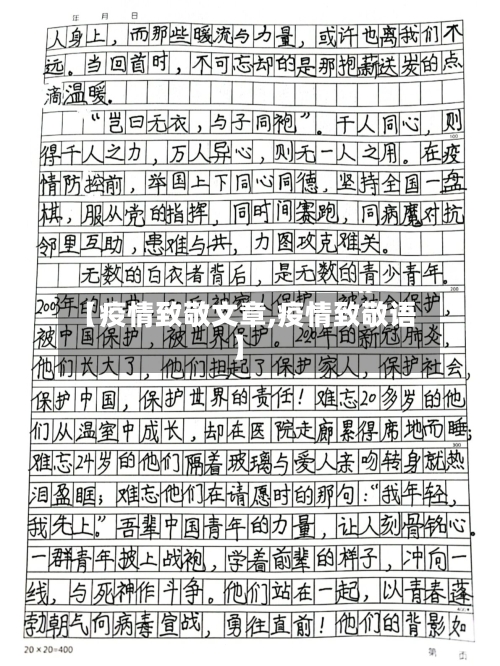 年 月 日
人身上，而那些暖流与力量，或许也离我们不
远。当回首时，不可忘却的是那抱薪送炭的点
滴温暖.
“岂曰无衣，与子同袍”。千人同心，则
100
得千人之力，万人异心，则无一人之用。在疫
情防控前，举国上下同心同德，坚持全国一盘
棋，服从党的指挥，同时间赛跑，同病魔对抗
邻里互助，患难与共，力图攻克难关。
无数的白衣者背后，是无数的青少青年。
200
2003年的 保护，被社会保护，
【疫情致敬文章,疫情致敬语
】
被中国保护，被世界保护。 年的新冠肺炎，
他们长大了，他们担起了保护家人，保护社会，
保护中国，保护世界的责任！难忘20多岁的他
们从温室中成长，却在医院走廊累得席地而睡；
300
难忘24岁的他们隔着玻璃与爱人亲吻转身就热
泪盈眶；难忘他们在请愿时的那句：“我年轻，
我先上。”吾辈中国青年的力量，让人刻骨铭心。
一群青年披上战袍，学着前辈的样子，冲向一
线，与死神作斗争。他们站在一起，以青春蓬
勃朝气向病毒宣战，勇往直前！他们的背影如
20×20=400
第 页